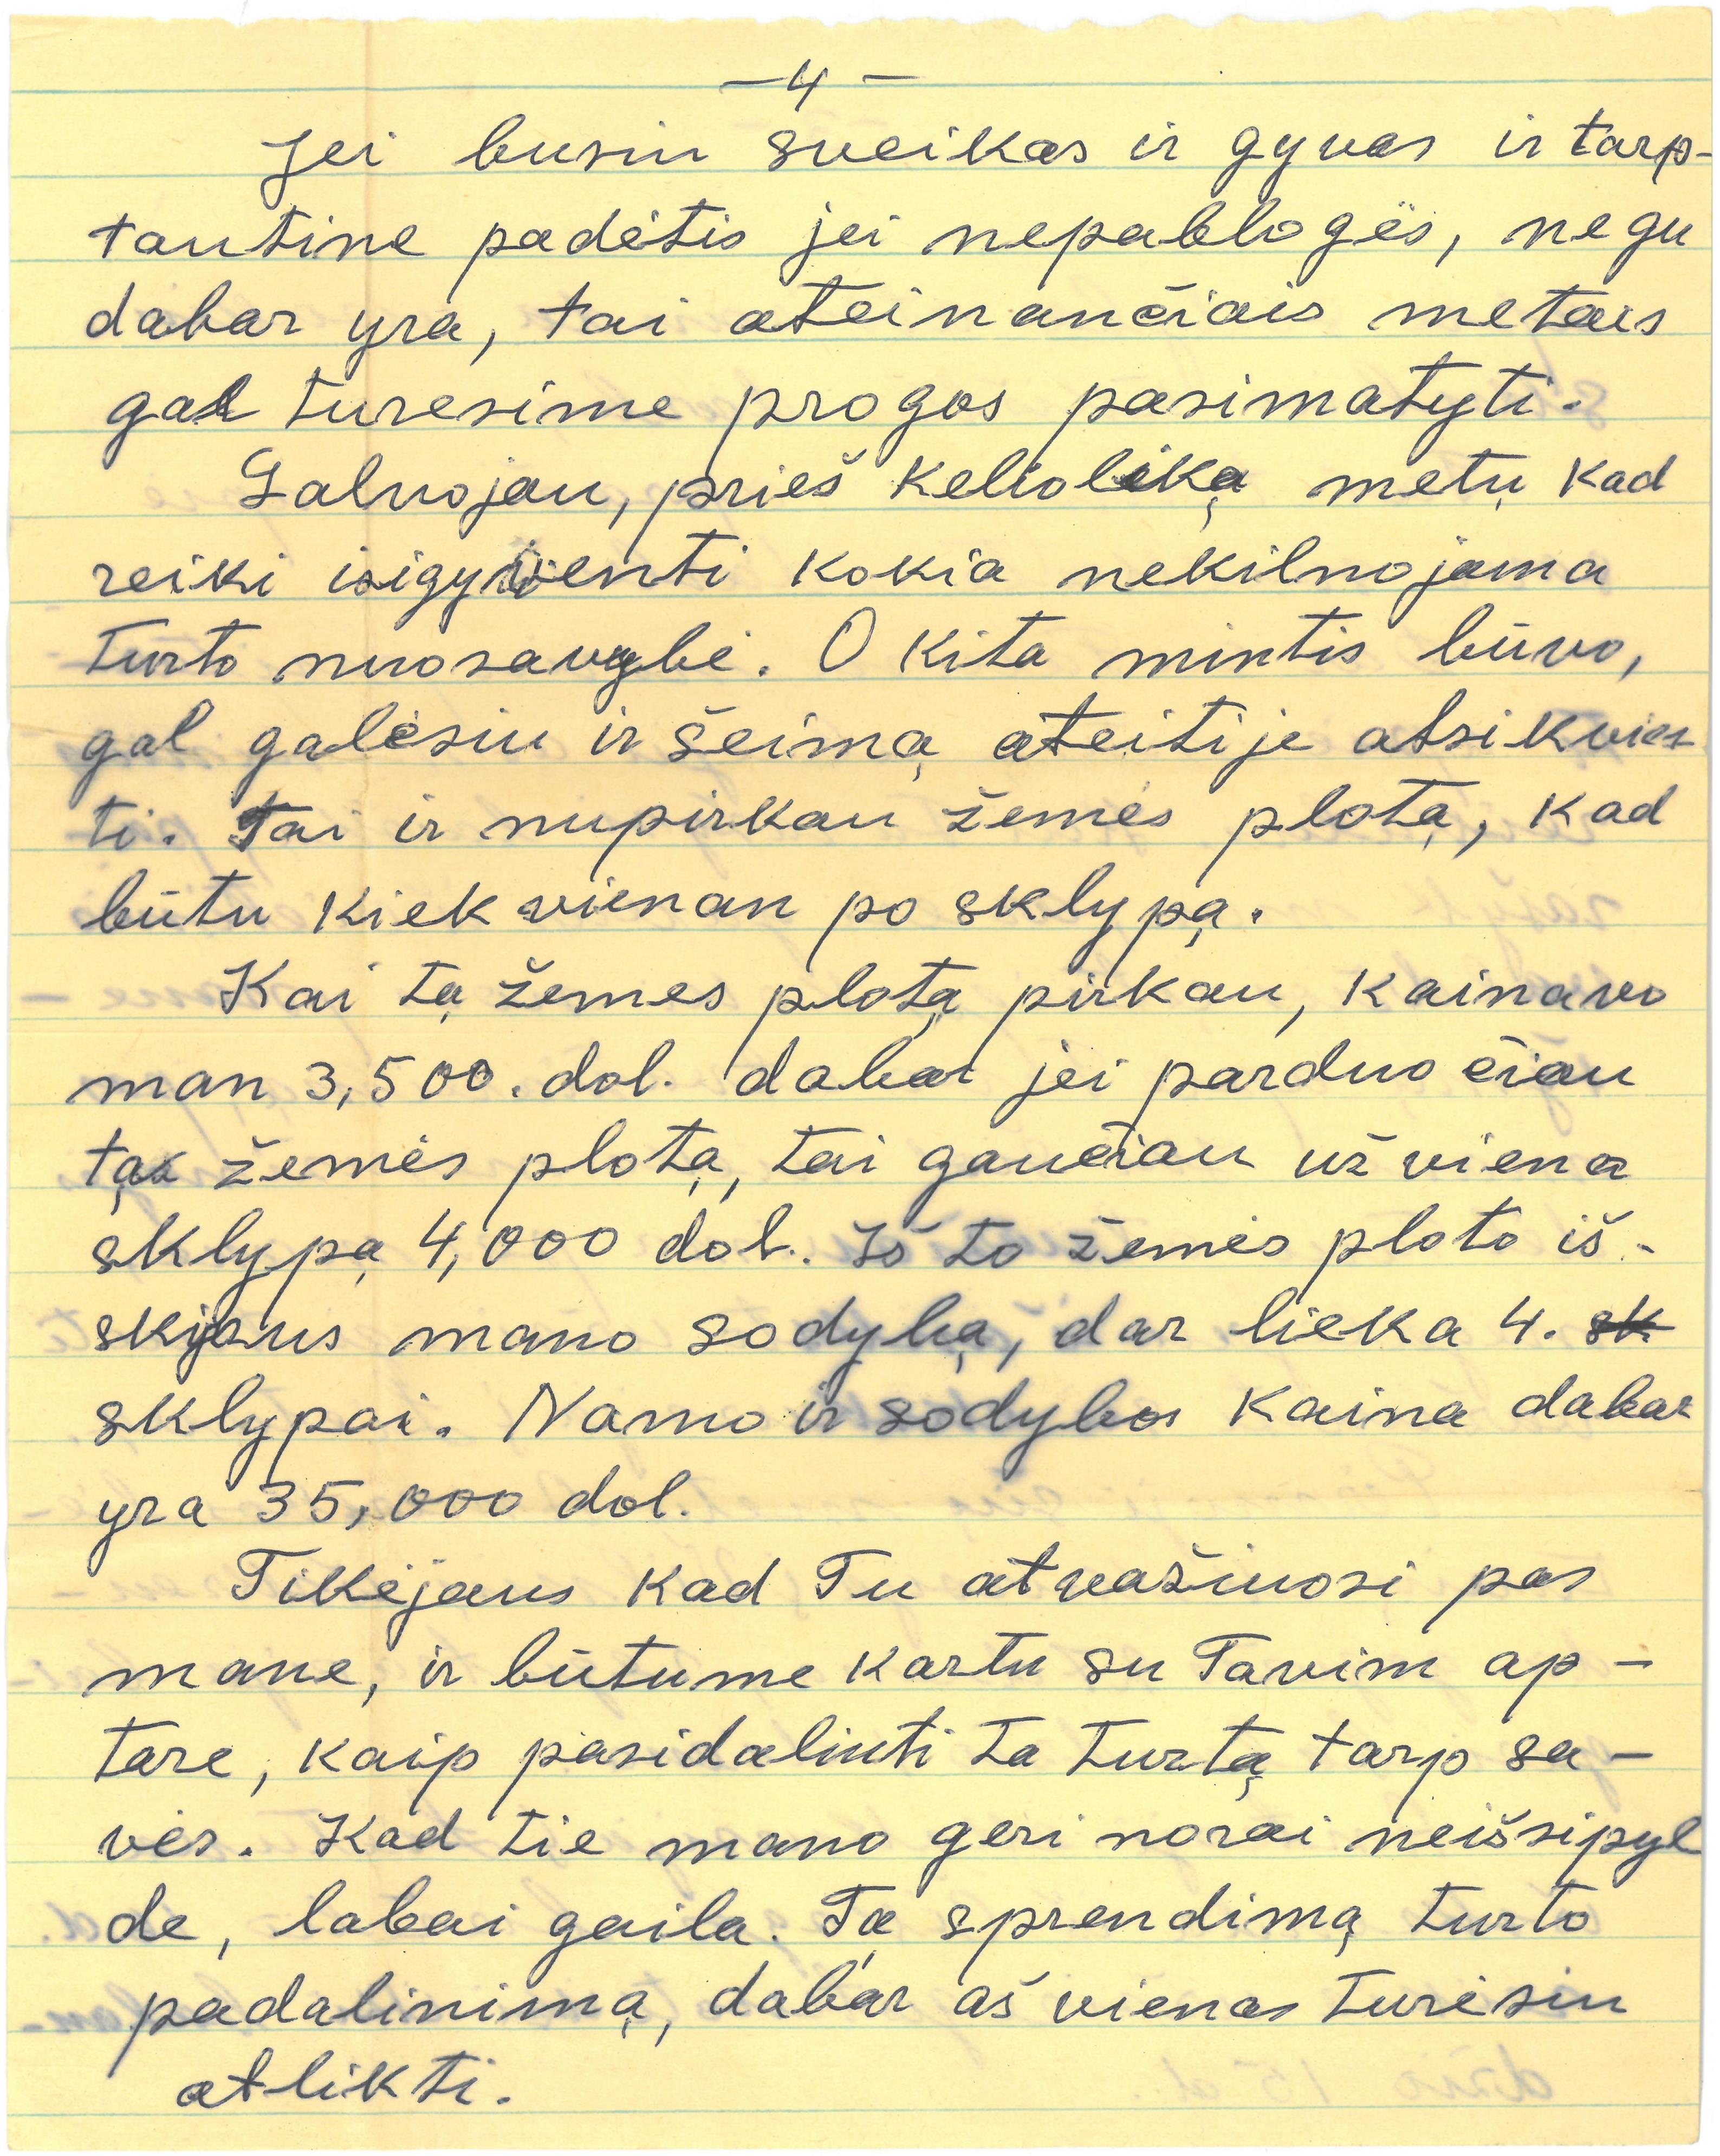 — 4 —
Jei busiu sveikas ir gyvas ir tarp-
tautine padėtis jei nepablogės, negu
dabar yra, tai ateinančiais metais
gal turesime progos pasimatyti.
Galvojau, prieš keliolika̧ metų kad
reiki isigyventi kokia nekilnojama
turto nuosavybė. O kita mintis būvo,
gal galėsiu ir šeimą ateitije atsikvies
ti. Tai ir nupirkau žemės plotą, kad
būtu kiekvienan po sklypą.
Kai tą žemes plotą pirkau, kainavo
man 3,500. dol. dabar jei parduočiau
tą žemės plotą, tai gaučiau už viena
sklypą 4,000 dol. Iš to žemės ploto iš-
skyrus mano sodybą, dar lieka 4. sk
sklypai. Namo ir sodybos kaina dabar
yra 35,000 dol.
Tikėjaus kad Tu atvažiuosi pas
mane, ir būtume kartu su Tavim ap-
tare, kaip pasidalinti ta turtą tarp sa-
vės. Kad tie mano geri norai neišsipyl
de, labai gaila. Tą sprendimą turto
padalinimą, dabar aš vienas turėsiu
atlikti.